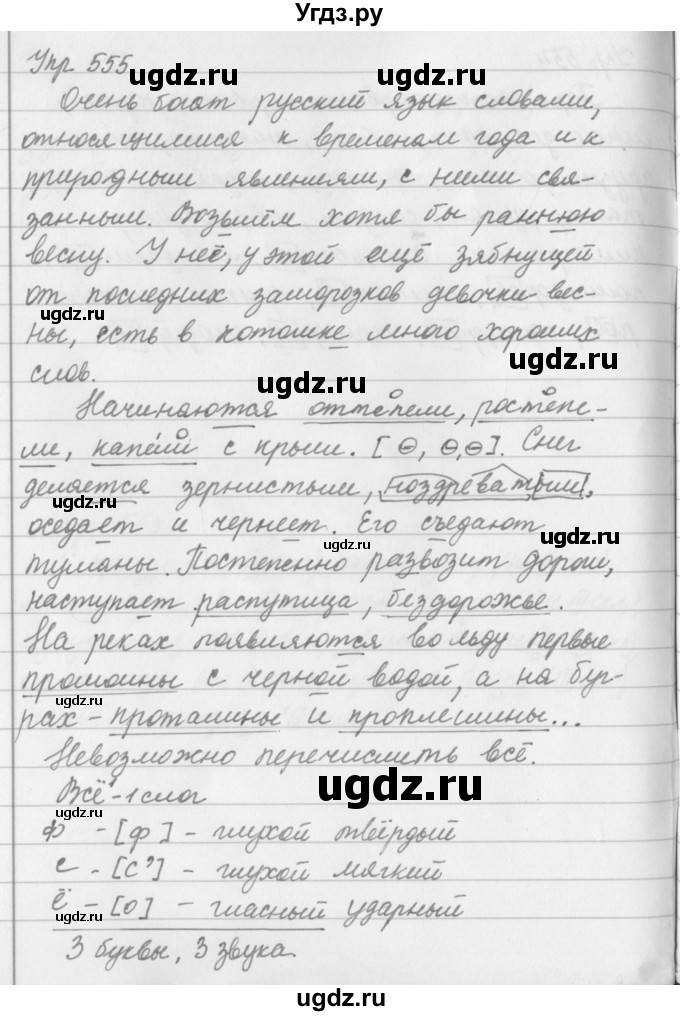 Угдз.ру
Упр 555
ugdz.ru ugdz.ru
Очень богат русский язык словами,
относящимися к временам года и к
природным явлениям, с ними свя-
ugdz.ru ugdz.ru
занными. Возьмём хотя бы раннюю
весну. У неё, у этой ещё зябнущей
от последних заморозков девочки вес-
ны, есть в котомке много хороших
ugdz.ru ugdz.ru
слов.
Начинаются оттепели, ростепе-
ugdz.ru
ли, капели с крыш. [ө, ө, ө]. Снег
делается зернистым, ноздреватым,
ugdz.ru
оседает и чернеет. Его съедают
ugdz.ru
туманы. Постепенно развозит дороги,
наступает распутица, бездорожье.
ugdz.ru
На реках появляются во льду первые
промоины с черной водой, а на буг-
ugdz.ru
рах - проталины и проплешины...
Невозможно перечислить всё.
ugdz.ru
Всё - 1 слог
ф - [ф] - глухой твёрдый
с - [с'] - глухой мягкий
ё - [о] - гласный ударный
ugdz.ru
3 буквы, 3 звука.
ugdz.ru
ugdz.ru